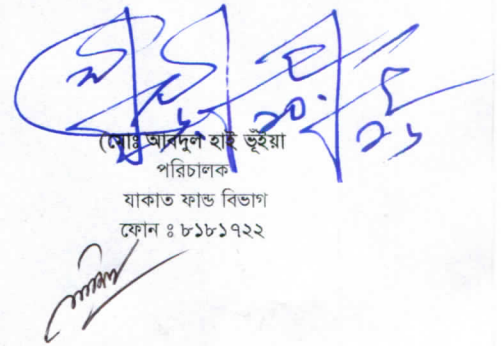 (মোঃ আবদুল হাই ভূঁইয়া
পরিচালক
যাকাত ফান্ড বিভাগ
ফোন ঃ ৮১৮১৭২২